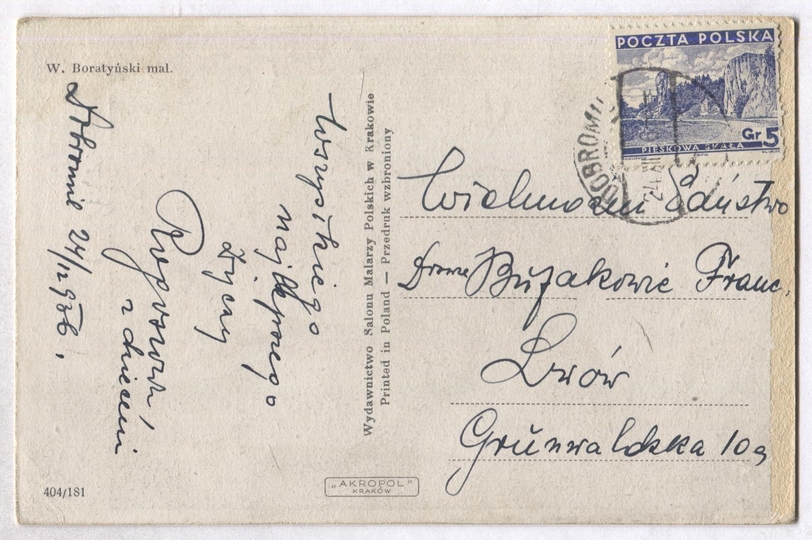 W. Boratyński mal.
Dobromil 24/12 936.
Wszystkiego
najlepszego
życzy
z dziećmi
Wydawnictwo Salonu Malarzy Polskich w Krakowie
Printed in Poland — Przedruk wzbroniony
POCZTA POLSKA
Gr 5
PIESKOWA SKAŁA
DOBROMIL
24 XII
Wielmożni Państwo
Franc.
Lwów
Grunwaldzka 10a
404/181
„AKROPOL”
KRAKÓW